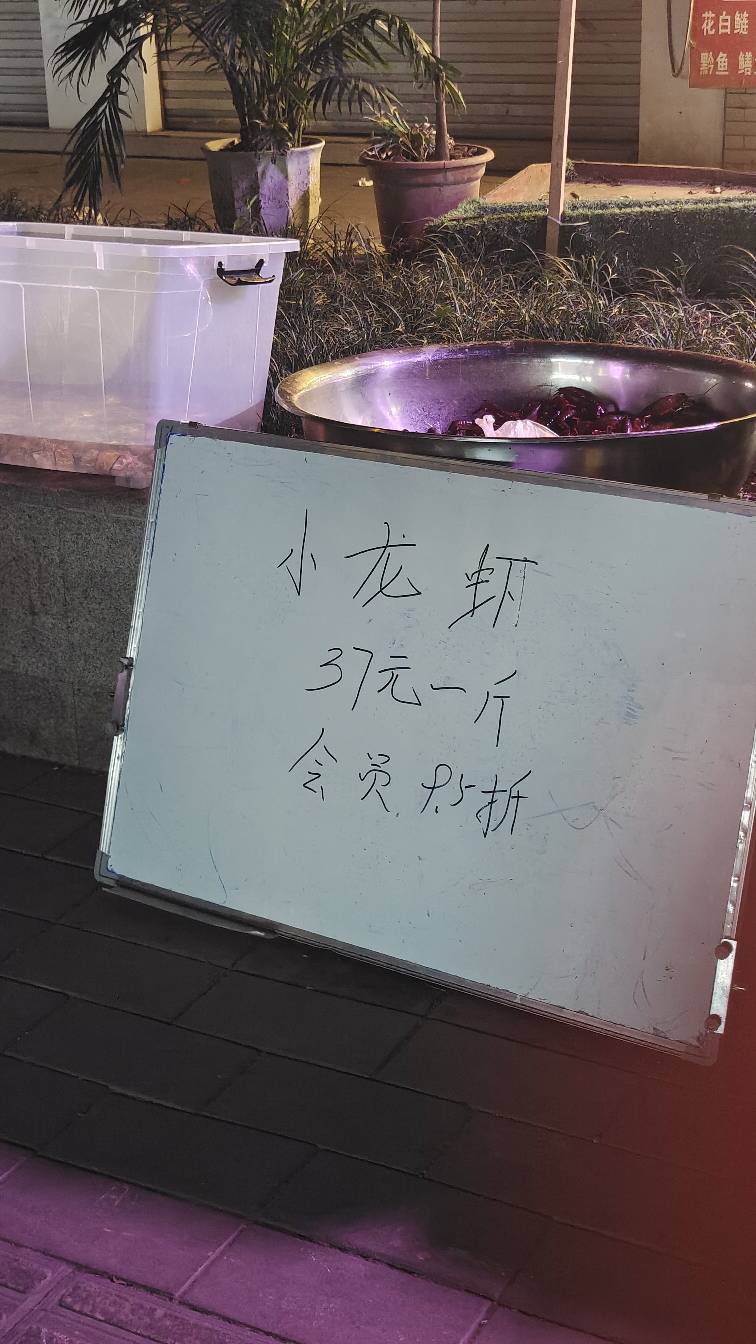 花白鲢
黔鱼 鳝
小龙虾
37元一斤
会员 9.5折